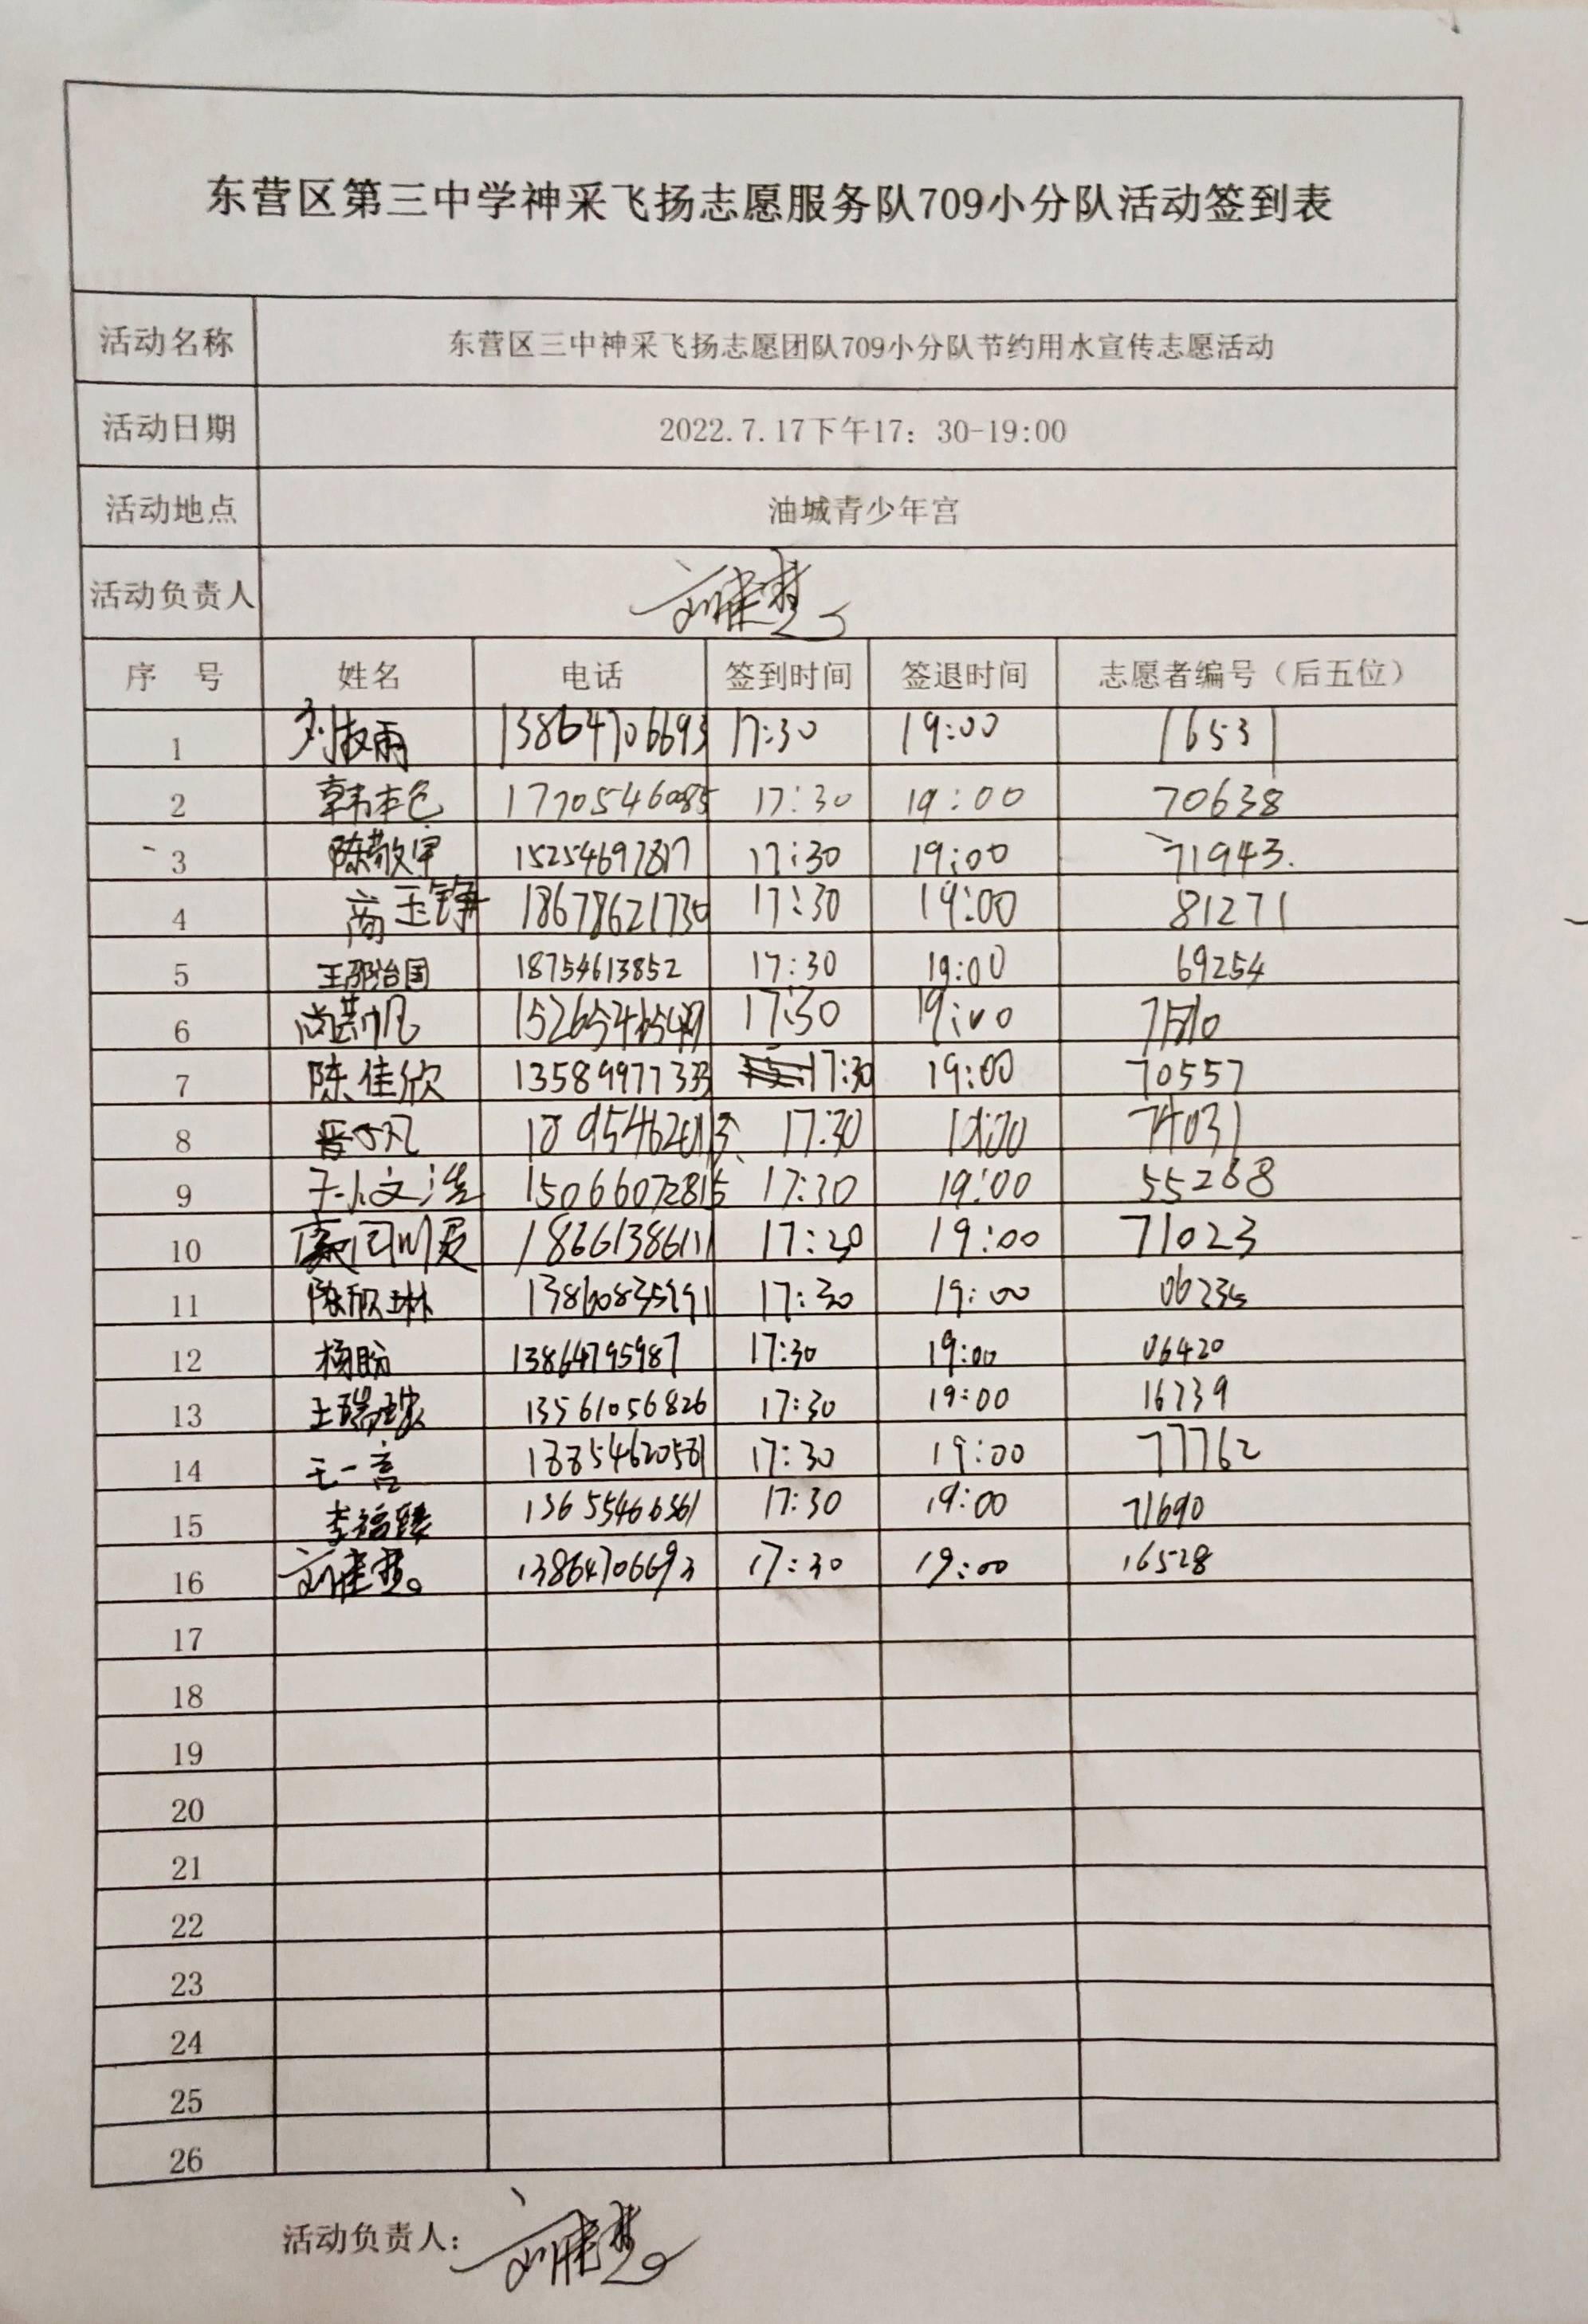 东营区第三中学神采飞扬志愿服务队709小分队活动签到表
活动名称 东营区三中神采飞扬志愿团队709小分队节约用水宣传志愿活动
活动日期 2022.7.17下午17：30-19:00
活动地点 油城青少年宫
活动负责人
序 号 姓名 电话 签到时间 签退时间 志愿者编号（后五位）
1 13864706693 17:30 19:00 16531
2 韩本色 17705460085 17:30 19:00 70638
3 陈敬宇 15254697817 17:30 19:00 71943.
4 商玉铮 18678621730 17:30 19:00 81271
5 王邵治国 18754613852 17:30 19:00 69254
6 17:30 19:00
7 陈佳欣 13589977333 17:30 19:00 70557
8 17:30 19:00 74031
9 15066072815 17:30 19:00 55268
10 17:30 19:00 71023
11 陈欣琳 17:30 19:00
12 杨盼 13864795987 17:30 19:00 06420
13 13561056826 17:30 19:00 16739
14 王一言 17:30 19:00 77762
15 李福臻 17:30 19:00 71690
16 13864706693 17:30 19:00 16528
17
18
19
20
21
22
23
24
25
26
活动负责人：